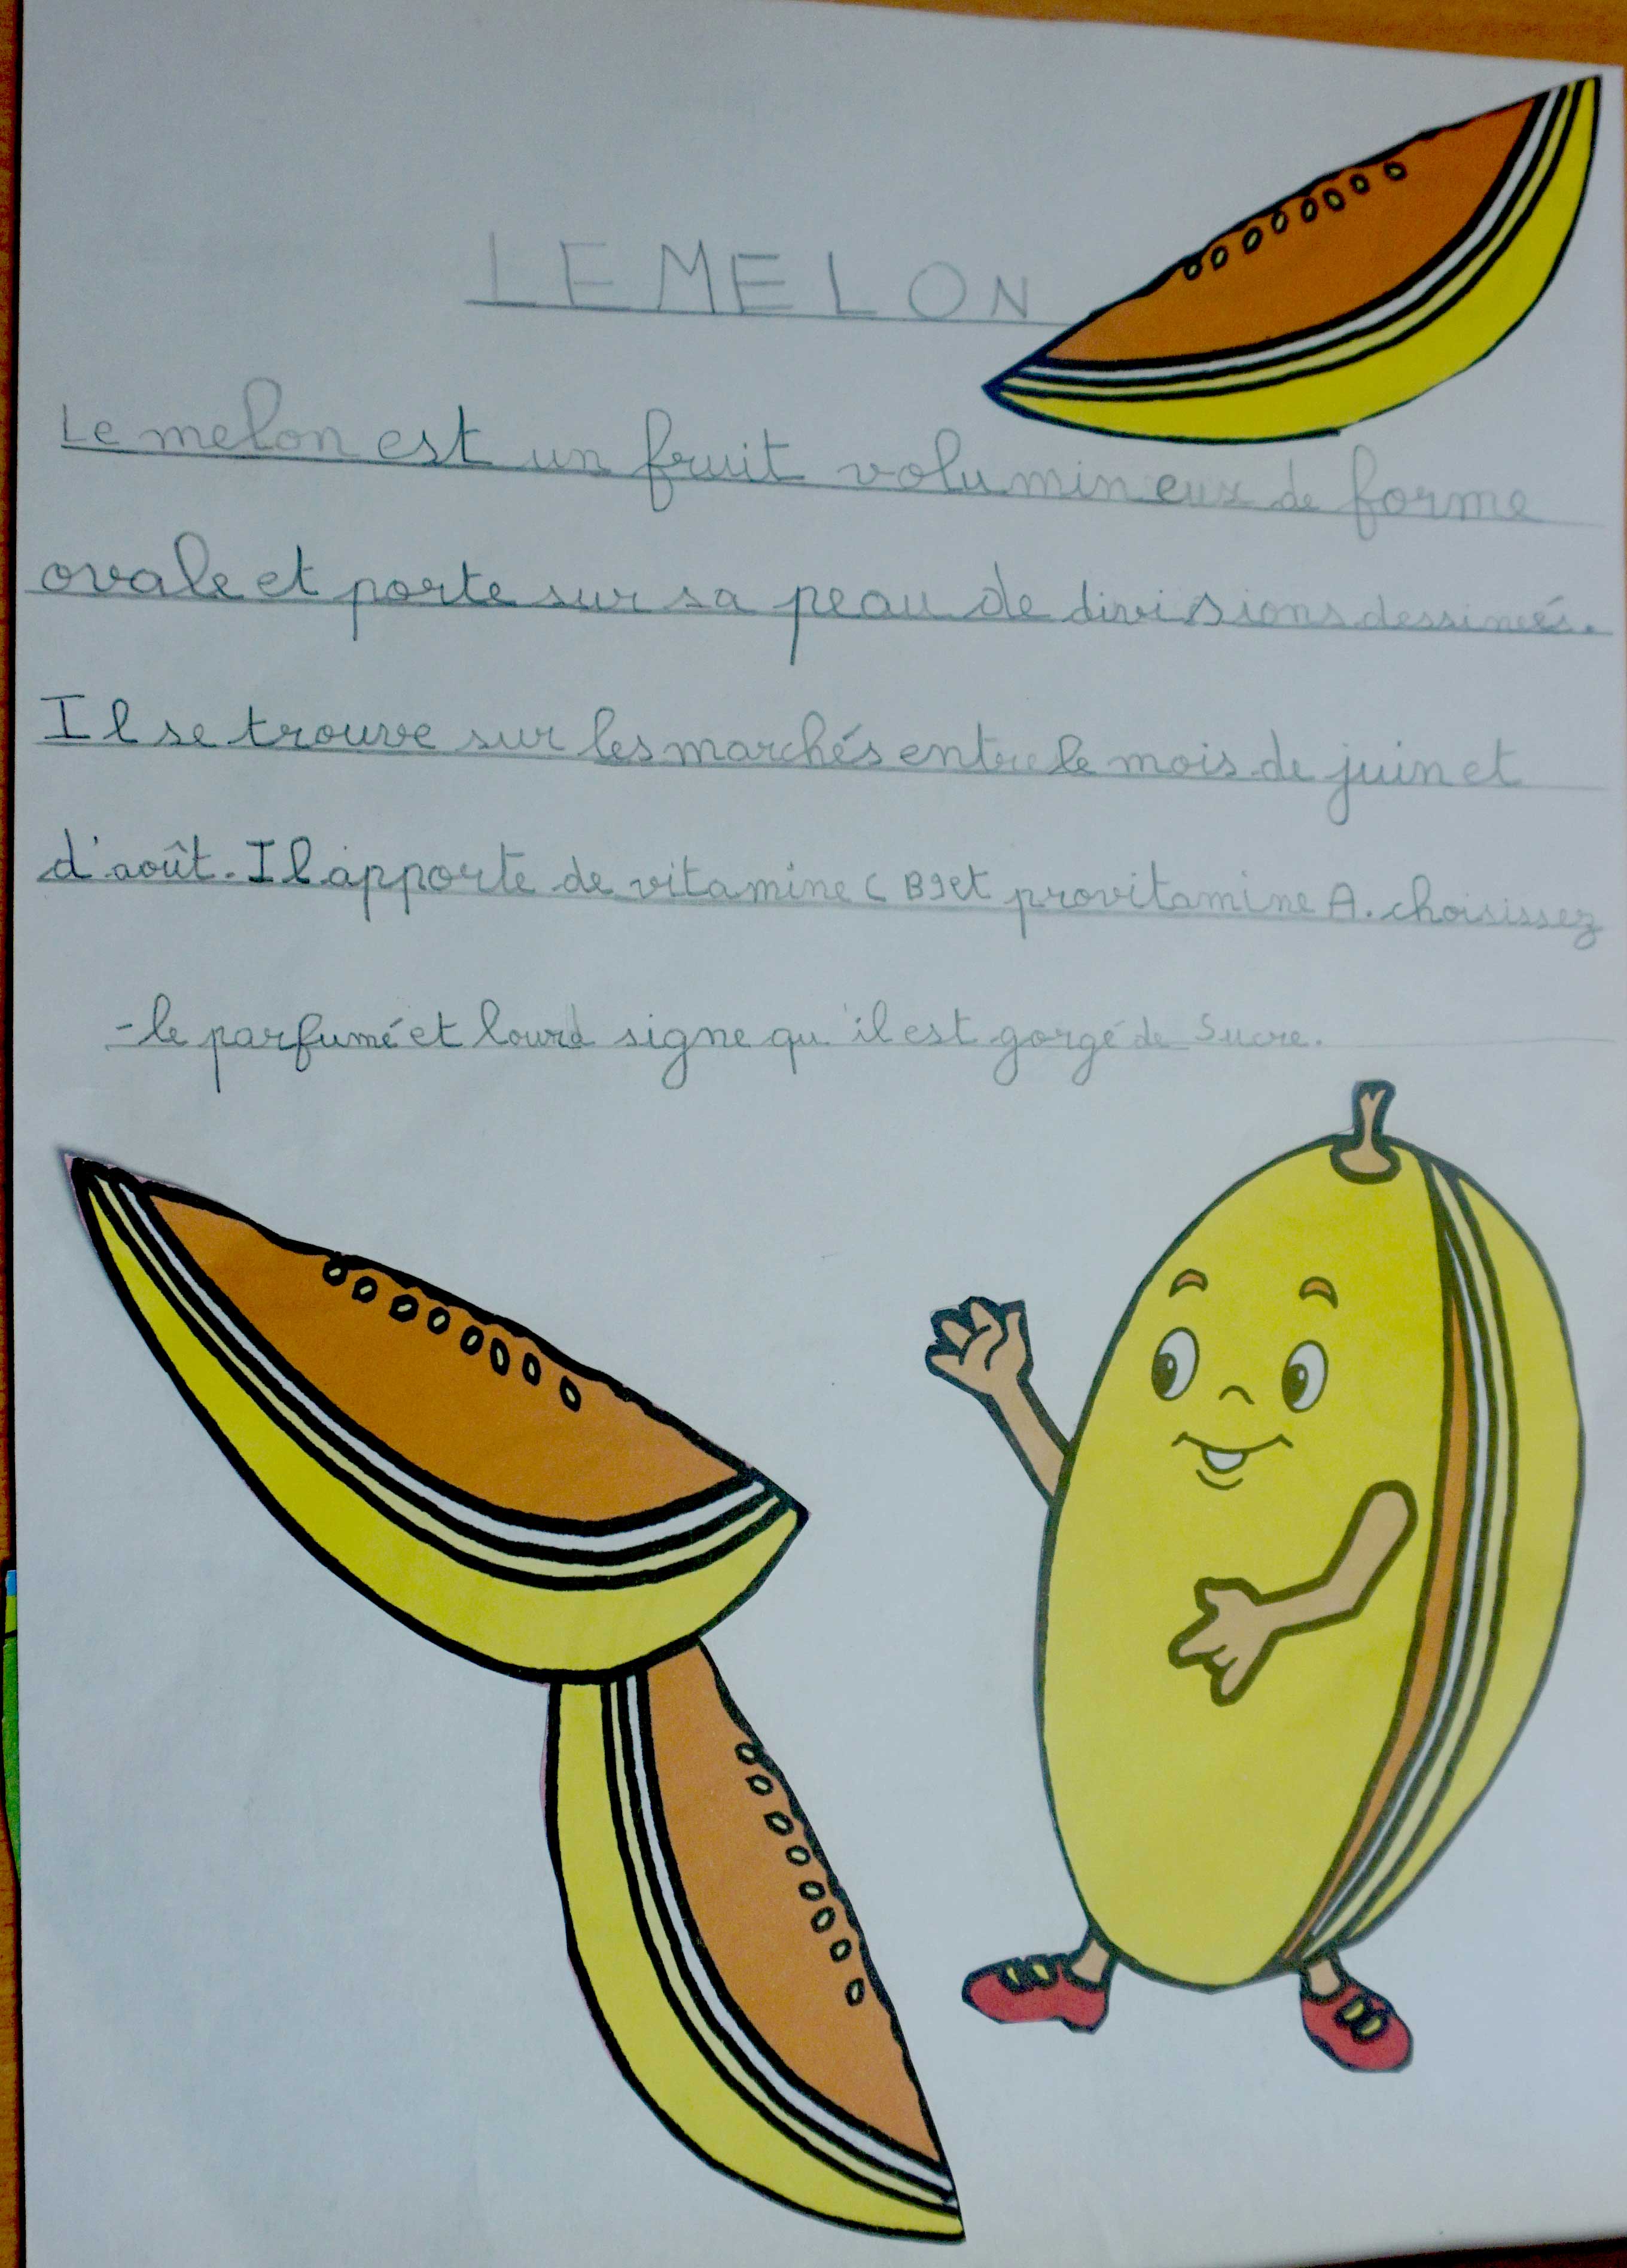 LE MELON
Le melon est un fruit volumineux de forme
ovale et porte sur sa peau de divisions dessinés.
Il se trouve sur les marchés entre le mois de juin et
d'août. Il apporte de vitamine C B9 et provitamine A. choisissez
-le parfumé et lourd signe qu'il est gorgé de Sucre.